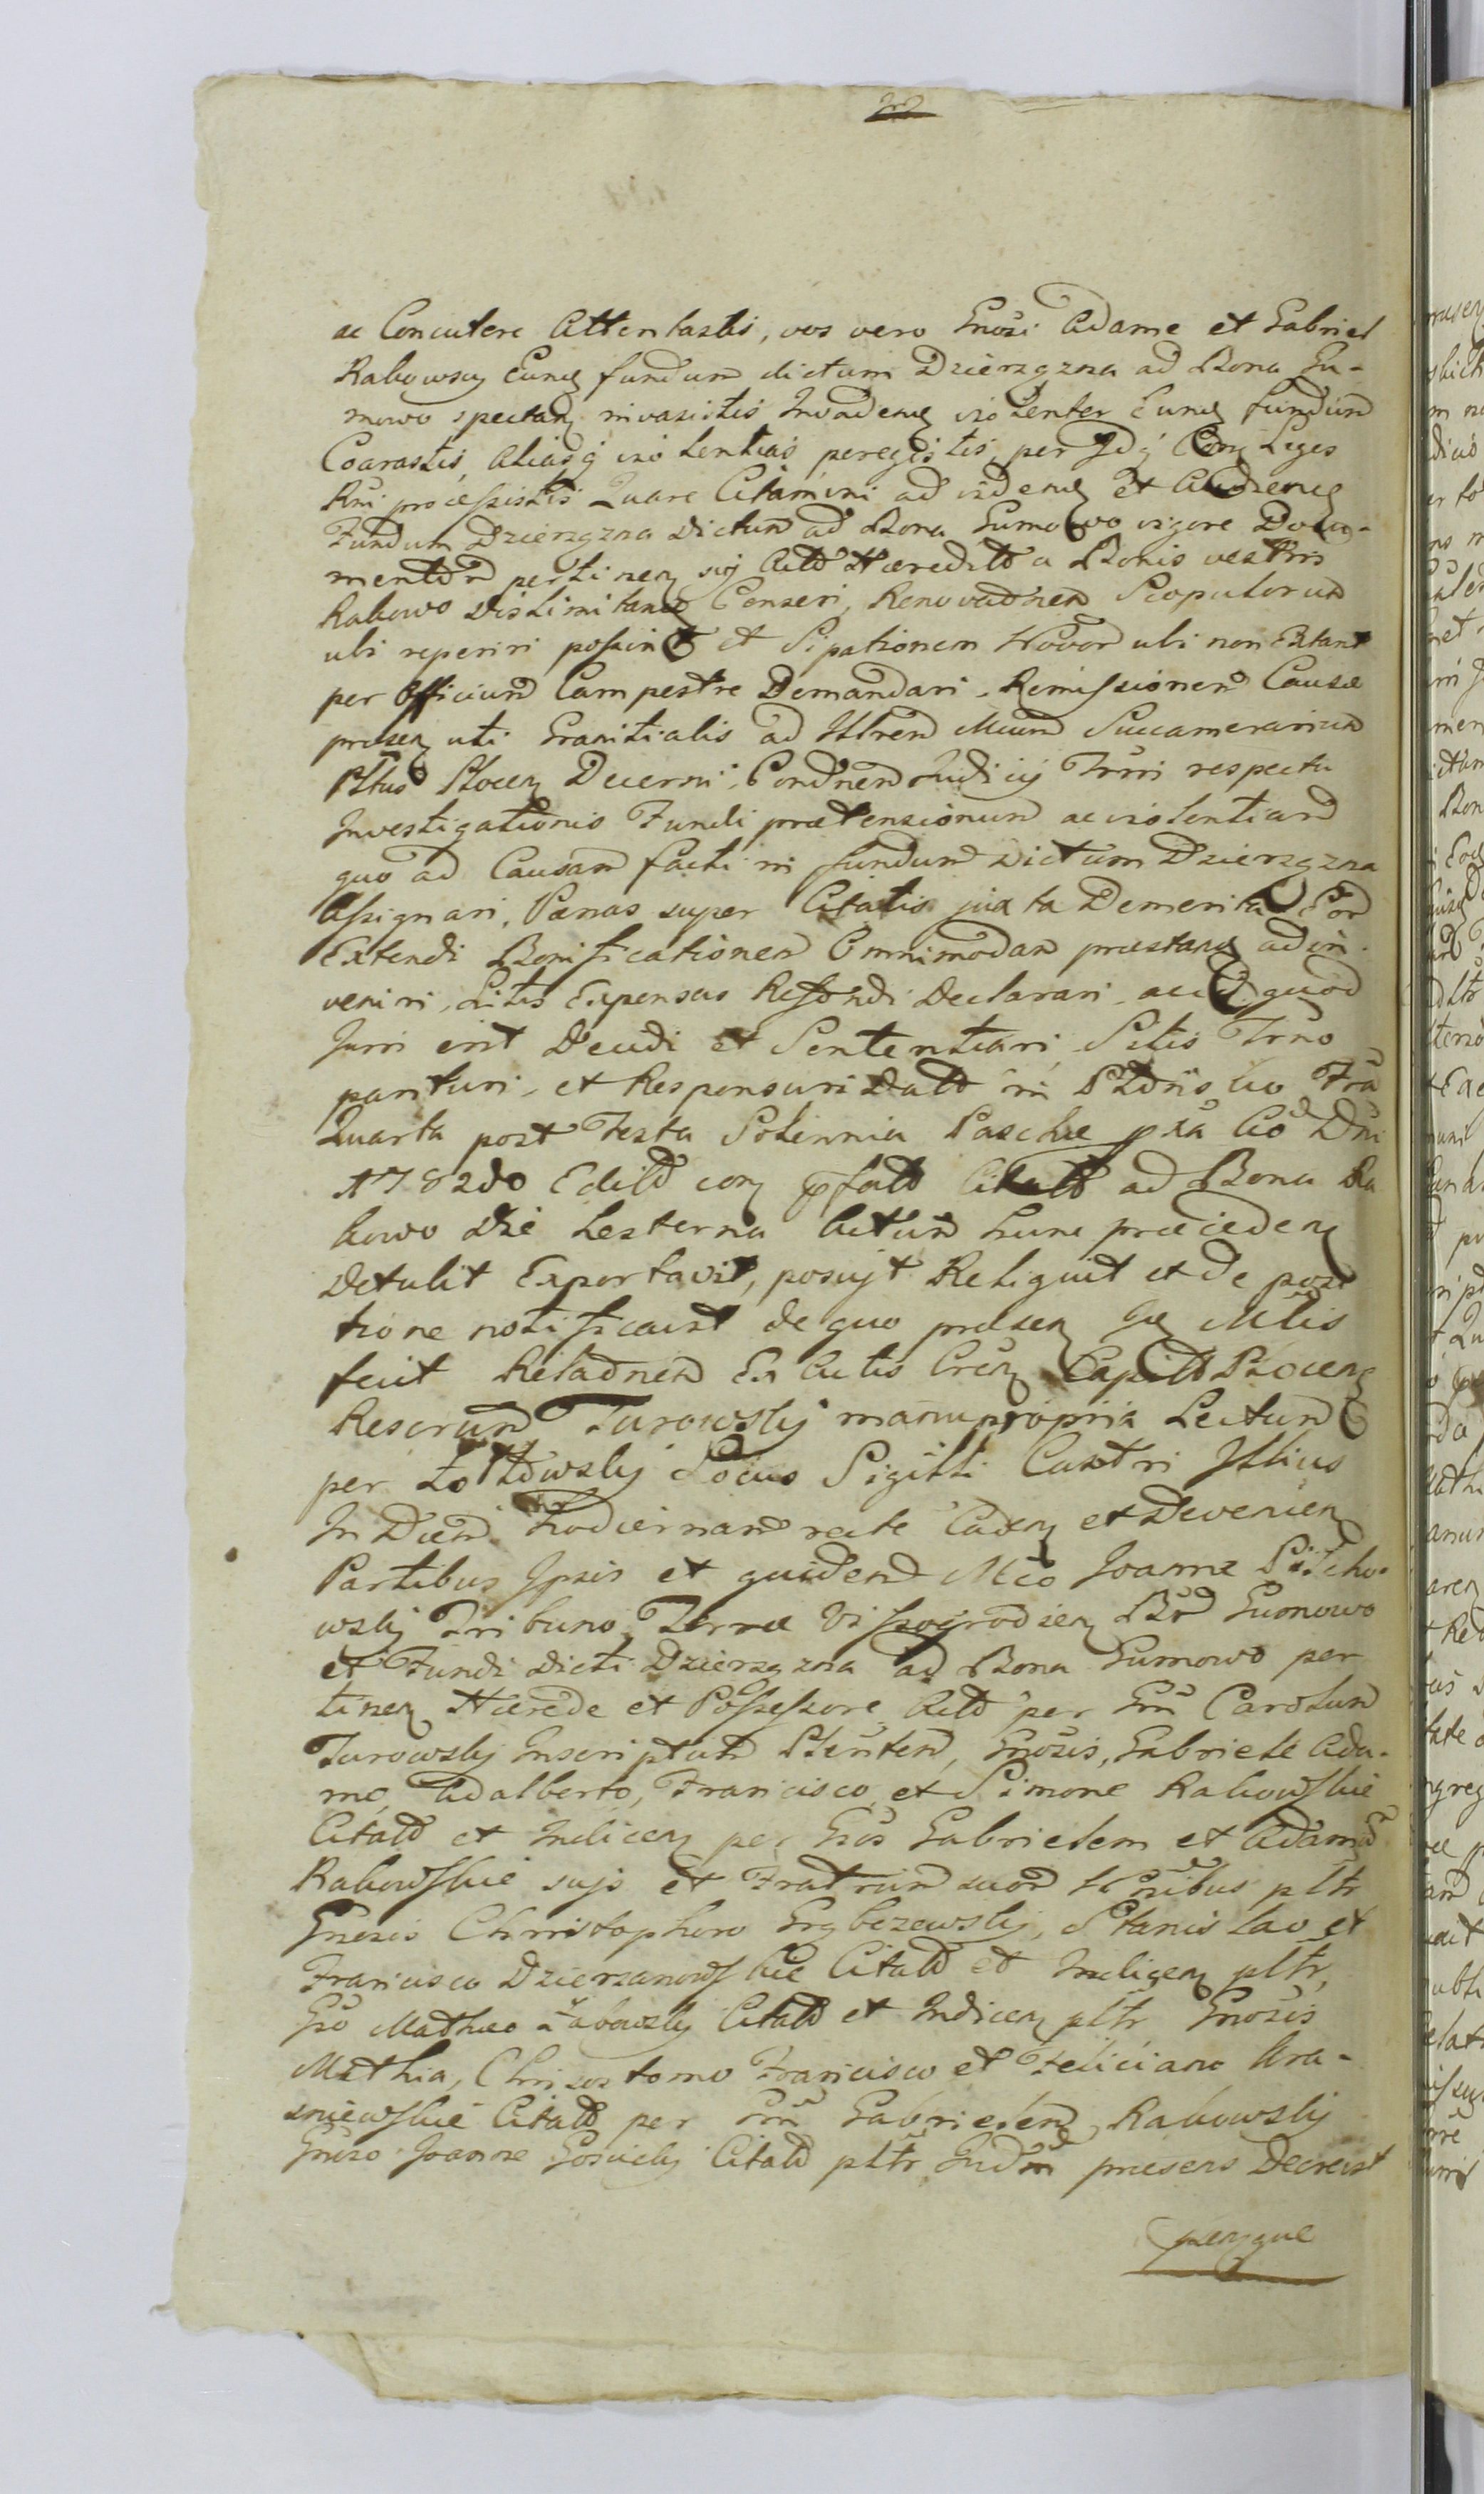 ac Concutere Attentastis, vos vero Gnosi Adame et Gabriel
Rakowscy Eunq fundum dictum Dzierzgzna ad Bona Gu-
mowo spectan invasistis Invadenq violenter Eunq fundum
Coarastis, Aliasq violentias peregistis, per Idq Con Leges
Rni processistis Quare Citamini ad videnq et Audienq
Fundum Dzierzgzna dictum ad Bona Gumowo vigore Docu-
mentor pertinen sig Actt Hæreditt a Bonis vestris
Rakowo Dislimitanq Censeri, Renovaonem Scopulorum
ubi reperiri possint et Sipationem Novor ubi non Extant
per Officium Campestre Demandari, Remissionem Causæ
præsen uti Granitialis ad Illrem Mcum Succamerarium
Pltus Plocen Decerni, Condnem Judicij Trri respectu
Investigationis Fundi prætensionum ac violentiarum
quo ad Causam facti in fundum dictum Dzierzgzna
Assignari, Pænas super Citatis juxta Demerita Eor
Extendi Bonificationem Omnimodam præstanq adin-
veniri, Litis Expensas Refondi Declarari, ac Id quod
Juri erit Decidi et Sententiari Sitis Trno
parituri, et Responsuri Datt in
Quarta post Festa Solennia Paschæ pxa Ao Dni
1782do Editt con pfatt Citatt ad Bona Ra
kowo Die hesterna Actum hunc præceden
Detulit Exportavit, posuit Reliquit et de posi
tione notificavit de quo præsen Gn Mtlis
fecit Relaonem Ex Actis Cren Capitt Plocen
Rescrum Turowsky manu propria Lectum
per Zołtowsky Locus Sigilli Castri Illius
In Diem hodiernam recte Caden et Devenien
Partibus Ipsis et quidem Mco Joanne Pilicho-
wsky Tribuno Terræ Vissogrodien Bor Gumowo
et Fundi dicti Dzierzgzna ad Bona Gumowo per
tinen Hærede et Possessore Actt per Gn Carolum
Turowsky Inscriptum Plenten, Gnosis, Gabriele Ada-
mo, Adalberto, Francisco et Simone Rakowskie
Citatt et Indicen per Gsos Gabrielem et Adamum
Rakowskie sujs et Fratrum suor Noibus pltr
Gnosis Christophoro Grzbczewsky, Stanislao et
Francisco Dzierzanowskie Citatt et Indicen pltr,
Gso Matheo Zabowsky Citatt et Indicen pltr Gnosis
Mathia, Chrisostomo Francisco et Feliciano Kra-
sniewskie Citatt per Gn Gabrielem Rakowsky
Gnoso Joanne Gosicky Citatt pltr Judm præsens Decrevit
penque